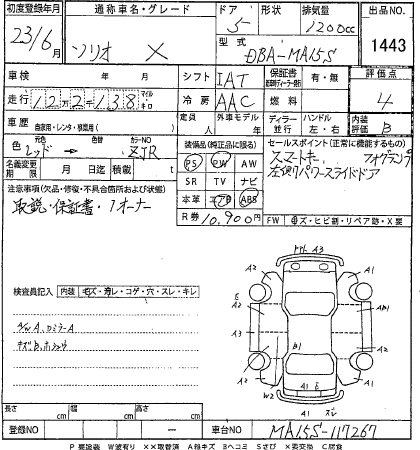 初度登録年月 通称車名・グレード ドア 形状 排気量 出品NO.
23/6月 ソリオ X 5 1200cc 1443
型式 DBA-MA15S
車検 年 月 シフト IAT 保証書 有・無 評価点
走行 12万2千138 マイル キロ 冷房 AAC 燃料 4
車歴 自家用・レンタ・事業用( ) 定員 人 外車モデル 年 ディーラー 並行 ハンドル 左・右 内装評価 B
色 レッド → 色替 カラーNO ZJR 装備品(純正品に限る) セールスポイント(正常に機能するもの)
名義変更期限 月 日迄 積載 t PS PW AW スマートキー フォグランプ
SR TV ナビ 左側パワースライドドア
注意事項(欠品・修復・不具合箇所および状態) 本革 エアB ABS
取説・保証書・1オーナー R券 10,900円 FW キズ・ヒビ割・リペア跡・X要
検査員記入 内装 キズ・汚レ・コゲ・穴・スレ・キレ
トリトー A3
A2 A1
E A2 A1
A3 A1
B1
A2 A2
A1 E
W2 A1
長さ cm 幅 cm 高さ cm
登録NO ー 車台NO MA15S-117267
P 要塗装 W波有り ××取替済 A線キズ Bヘコミ Sさび ×要交換 C腐食